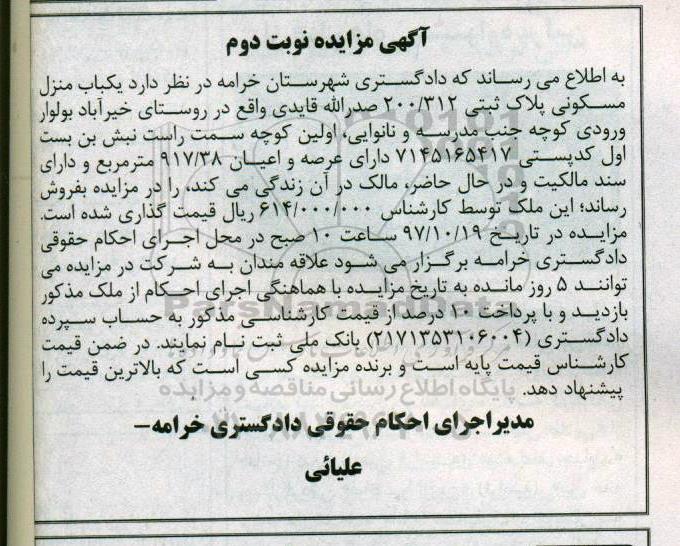 آگهی مزایده نوبت دوم
به اطلاع می رساند که دادگستری شهرستان خرامه در نظر دارد یکباب منزل
مسکونی پلاک ثبتی ۲۰۰/۳۱۲ صدرالله قایدی واقع در روستای خیرآباد بولوار
ورودی کوچه جنب مدرسه و نانوایی، اولین کوچه سمت راست نبش بن بست
اول کدپستی ۷۱۴۵۱۶۵۴۱۷ دارای عرصه و اعیان ۹۱۷/۳۸ مترمربع و دارای
سند مالکیت و در حال حاضر، مالک در آن زندگی می کند، را در مزایده بفروش
رساند؛ این ملک توسط کارشناس ۶۱۴/۰۰۰/۰۰۰ ریال قیمت گذاری شده است.
مزایده در تاریخ ۹۷/۱۰/۱۹ ساعت ۱۰ صبح در محل اجرای احکام حقوقی
دادگستری خرامه برگزار می شود علاقه مندان به شرکت در مزایده می
توانند ۵ روز مانده به تاریخ مزایده با هماهنگی اجرای احکام از ملک مذکور
بازدید و با پرداخت ۱۰ درصد از قیمت کارشناسی مذکور به حساب سپرده
دادگستری (۲۱۷۱۳۵۳۱۰۶۰۰۴) بانک ملی ثبت نام نمایند. در ضمن قیمت
کارشناس قیمت پایه است و برنده مزایده کسی است که بالاترین قیمت را
پیشنهاد دهد.
مدیراجرای احکام حقوقی دادگستری خرامه–
علیائی
ParsNamadData
پایگاه اطلاع رسانی مناقصه و مزایده